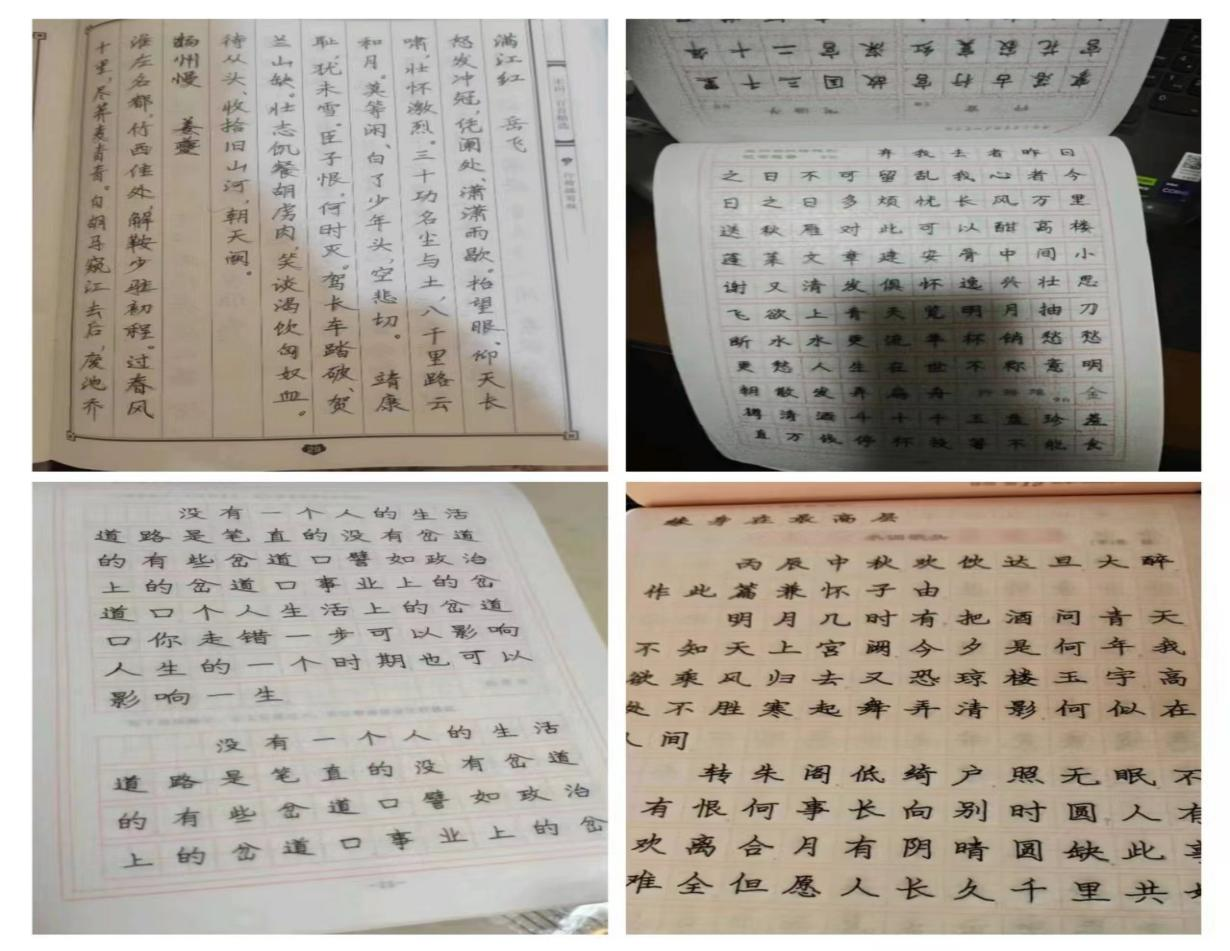 满江红 岳飞
怒发冲冠，凭阑处、潇潇雨歇。抬望眼、仰天长
啸，壮怀激烈。三十功名尘与土，八千里路云
和月。莫等闲、白了少年头，空悲切。 靖康
耻，犹未雪。臣子恨，何时灭。驾长车踏破、贺
兰山缺。壮志饥餐胡虏肉，笑谈渴饮匈奴血。
待从头、收拾旧山河，朝天阙。
扬州慢 姜夔
淮左名都，竹西佳处，解鞍少驻初程。过春风
十里，尽荠麦青青。自胡马窥江去后，废池乔
寥落古行宫 故国三千里
宫花寂寞红 深宫二十年
弃我去者昨日
之日不可留乱我心者今
日之日多烦忧长风万里
送秋雁对此可以酣高楼
蓬莱文章建安骨中间小
谢又清发俱怀逸兴壮思
飞欲上青天览明月抽刀
断水水更流举杯销愁愁
更愁人生在世不称意明
朝散发弄扁舟 行路难 金
樽清酒斗十千玉盘珍羞
直万钱停杯投箸不能食
没有一个人的生活
道路是笔直的没有岔道
的有些岔道口譬如政治
上的岔道口事业上的岔
道口个人生活上的岔道
口你走错一步可以影响
人生的一个时期也可以
影响一生
没有一个人的生活
道路是笔直的没有岔道
的有些岔道口譬如政治
上的岔道口事业上的岔
缘身在最高层
水调歌头
丙辰中秋欢饮达旦大醉
作此篇兼怀子由
明月几时有把酒问青天
不知天上宫阙今夕是何年我
欲乘风归去又恐琼楼玉宇高
处不胜寒起舞弄清影何似在
人间
转朱阁低绮户照无眠不
有恨何事长向别时圆人有
欢离合月有阴晴圆缺此事
难全但愿人长久千里共